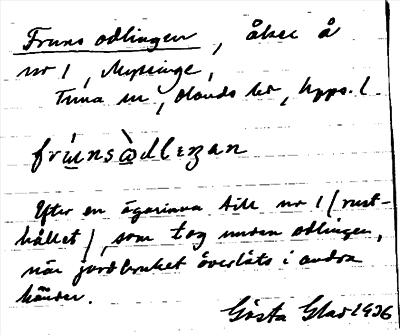 Fruns odlingen, åker å
nr 1, Mysinge,
Tuna sn, Olands hd, Upps. l.
frúnsòdlɩŋan
Efter en ägarinna till nr 1 (rust-
hållet), som tog undan odlingen,
när jordbruket överläts i andra
händer.
Gösta Glas 1936